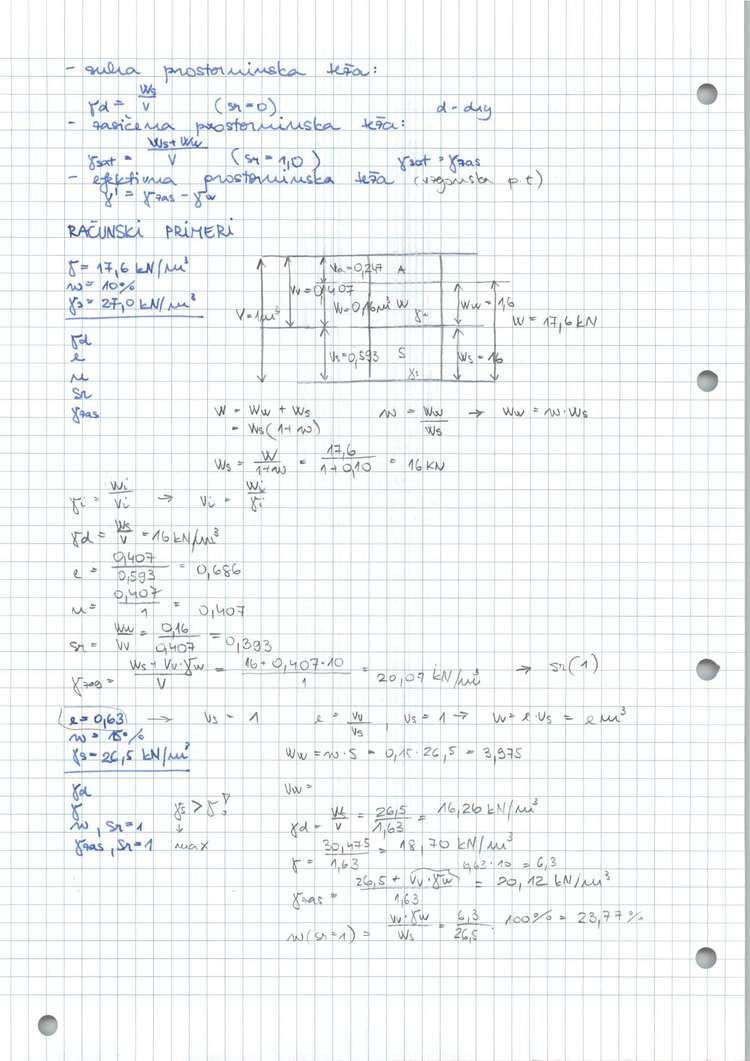 - suha prostorninska teža:
γd = Ws/V (Sr=0) d - dry
- zasičena prostorninska teža:
γsat = Ws+Ww/V (Sr = 1,0) γsat = γzas
- efektivna prostorninska teža (vzgonska p.t)
γ' = γzas - γw
RAČUNSKI PRIMERI
γ = 17,6 kN/m³
w = 10%
γs = 27,0 kN/m³
γd
e
n
Sr
γzas
V=1m³
Vv=0,407
Va=0,247 A
Vw=0,16m³ W γw
Vs=0,593 S γs
Ww = 1,6
Ws = 16
W = 17,6 kN
W = Ww + Ws w = Ww/Ws → Ww = w·Ws
= Ws(1+w)
Ws = W/1+w = 17,6/1+0,10 = 16 kN
γi = Wi/Vi → Vi = Wi/γi
γd = Ws/V = 16 kN/m³
e = 0,407/0,593 = 0,686
n = 0,407/1 = 0,407
Sr = Vw/Vv = 0,16/0,407 = 0,393
γzas = Ws + Vv·γw/V = 16+0,407·10/1 = 20,07 kN/m³ → Sr(1)
e = 0,63 → Vs = 1 e = Vv/Vs, Vs = 1 → Vv = e·Vs = e m³
w = 15%
γs = 26,5 kN/m³ Ww = w·S = 0,15·26,5 = 3,975
γd
γ γs > γ !
w, Sr=1 ↓
γzas, Sr=1 max
Vw =
γd = Ws/V = 26,5/1,63 = 16,26 kN/m³
γ = 30,475/1,63 = 18,70 kN/m³
0,63·10 = 6,3
γzas = 26,5 + Vv·γw/1,63 = 20,12 kN/m³
w(Sr=1) = Vv·γw/Ws = 6,3/26,5 · 100% = 23,77%